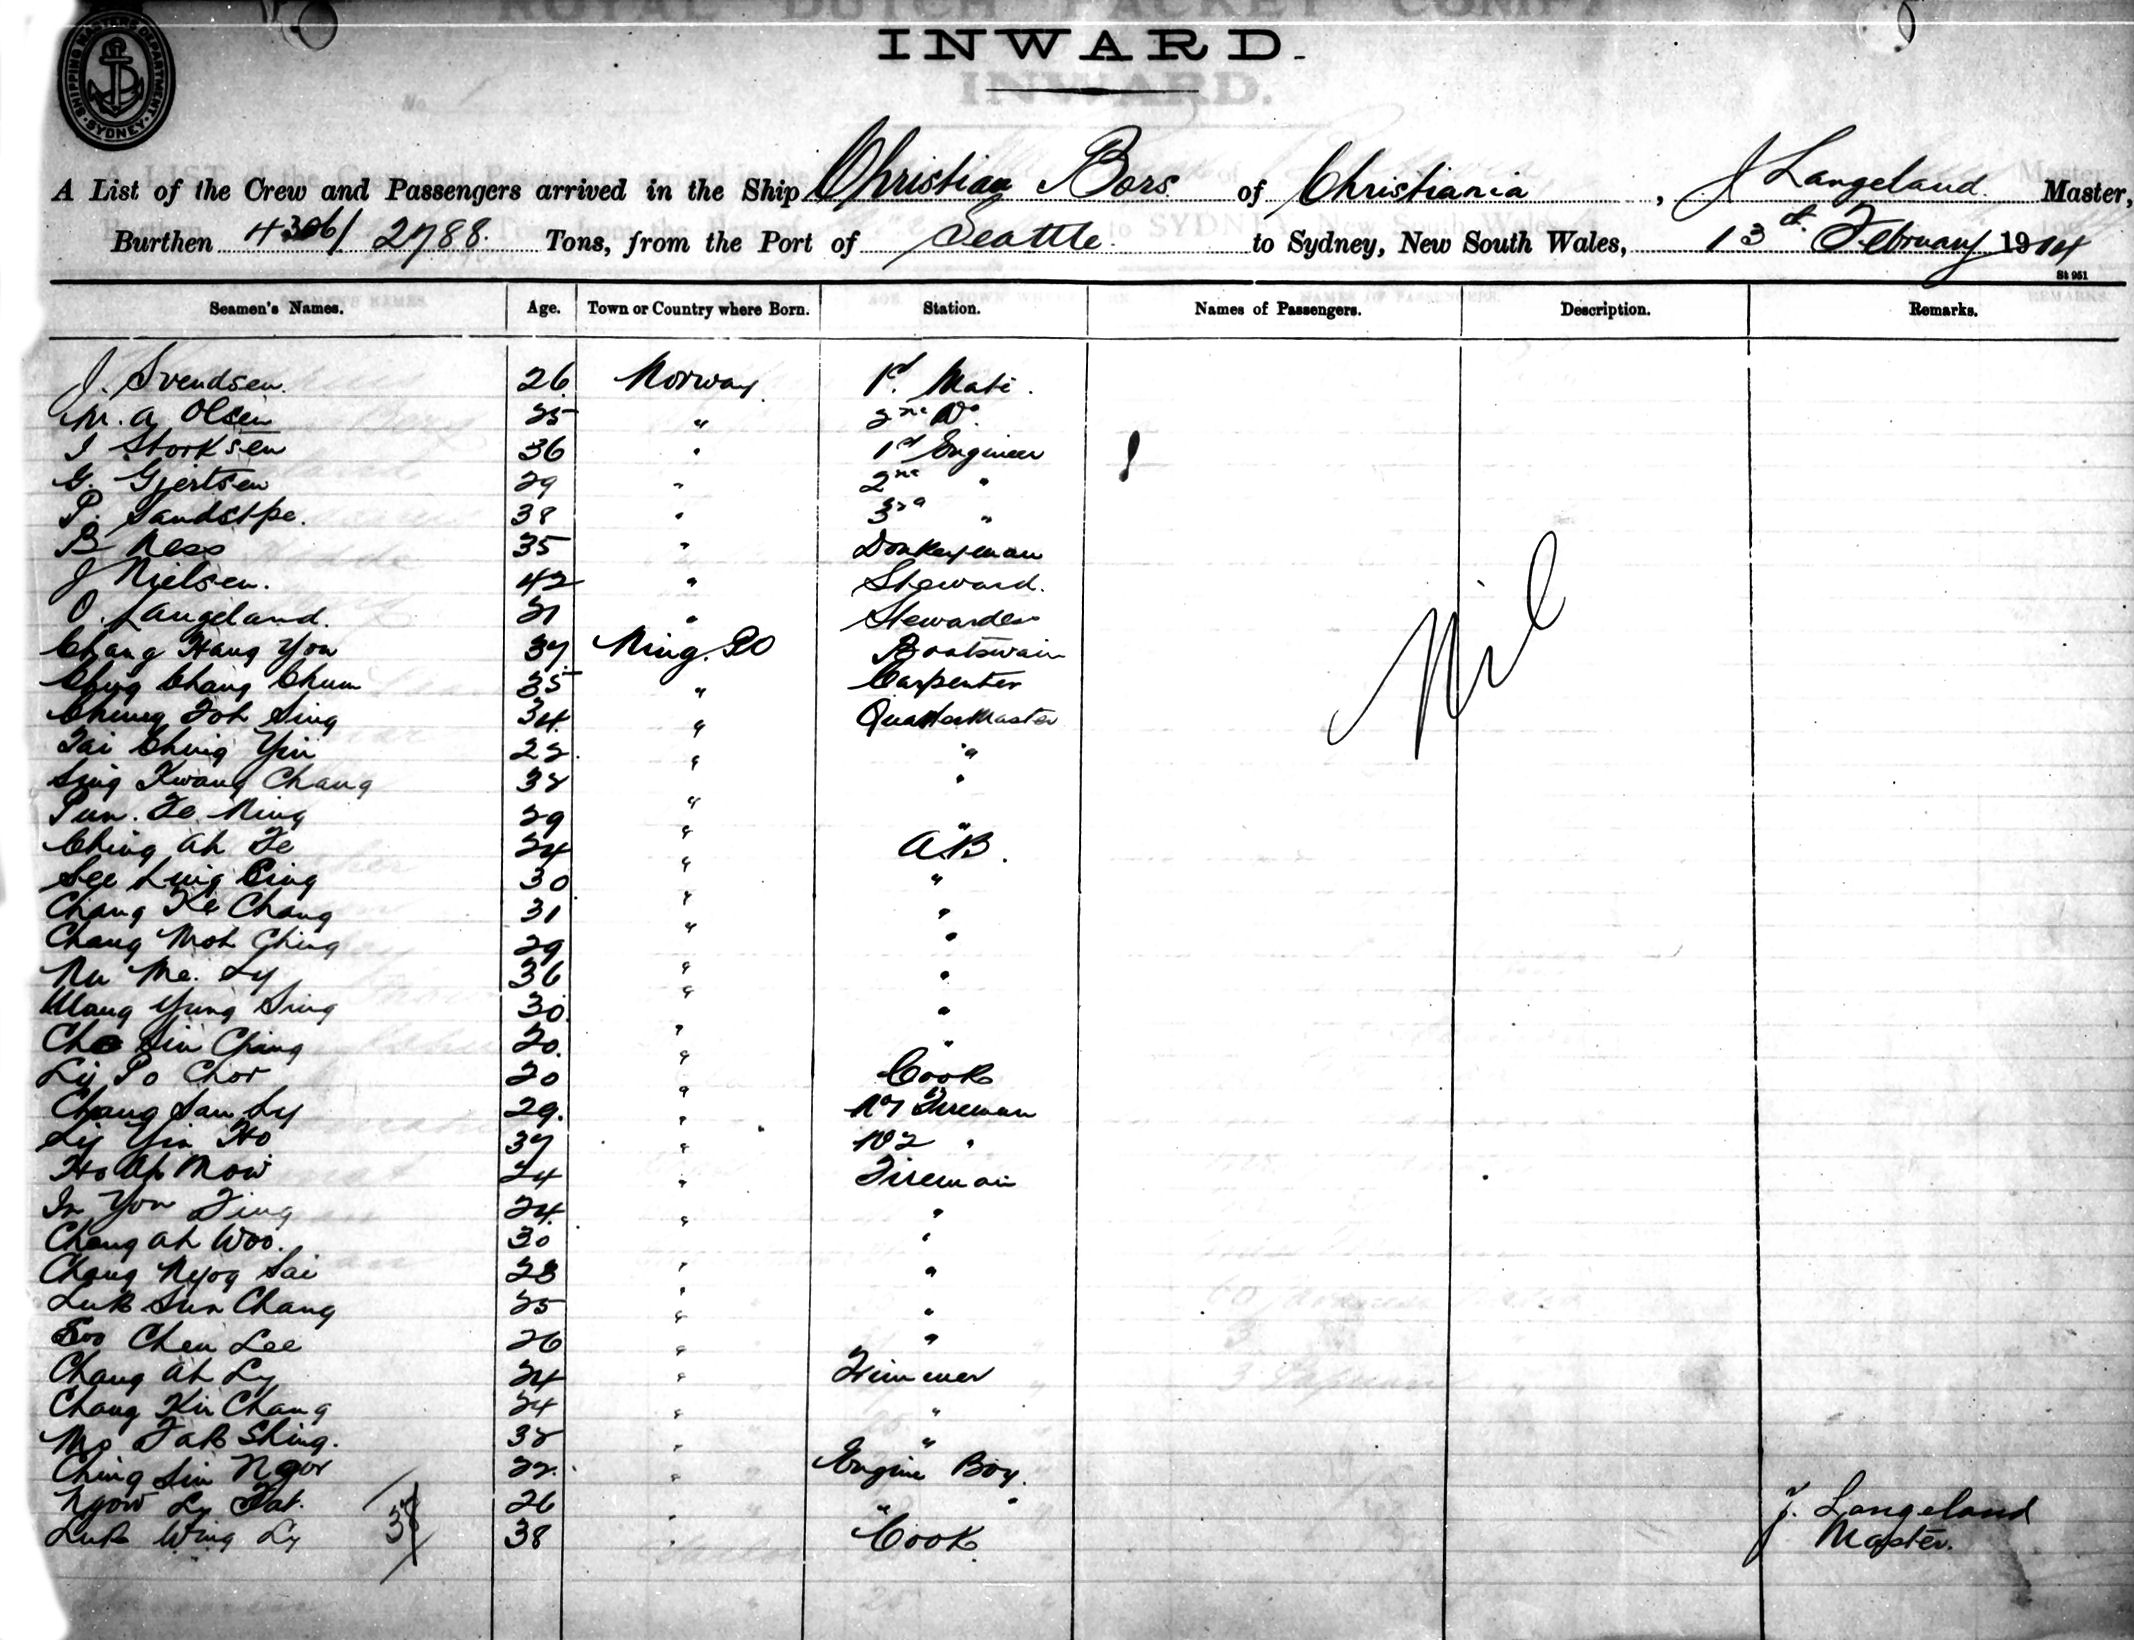 ROYAL DUTCH PACKET COMPY
INWARD.
SHIPPING MASTERS DEPARTMENT SYDNEY
A List of the Crew and Passengers arrived in the Ship Christian Bors of Christiania, J Langeland Master,
Burthen 4306/2788 Tons, from the Port of Seattle to Sydney, New South Wales, 13th February 1914
St 951
Seamen's Names. Age. Town or Country where Born. Station. Names of Passengers. Description. Remarks.
J. Svendsen. 26 Norway 1st Mate.
M. A Olsen 25 " 2nd Do.
I Storksen 36 " 1st Engineer
G. Gjertsen 29 " 2nd "
P. 38 " 3rd "
B Ness 35 " Donkeyman
J Nielsen. 42 " Steward.
O. Langeland. 21 " Stewardess
Chang Hang You 37 Ning. Po Boatswain
Ching Chang Chum 35 " Carpenter
Chung Foh Sing 34 " QuarterMaster
Tai Ching Yin 22 " "
Sing Kwang Chang 32 " "
Pun. Fe Ning 29 " "
Ching Ah Fe 24 " A.B.
See Ling Ping 30 " "
Chang Ke Chang 31 " "
Chang Moh Ching 29 " "
Nu Me. Ly 36 " "
Wang Yung Sing 30 " "
Cho Sin Chang 20. " "
Ly Po Chor 20 " Cook
Chang San Ly 29. " No 1 Fireman
Ly Yin Ho 37 " No 2 "
Ho Ah Mow 24 " Fireman
In You Fing 24 " "
Chang Ah Woo. 30 " "
Chang Nyog Sai 28 " "
Luk Sun Chang 25 " "
Chen Lee 26 " "
Chang Ah Ly 24 " Trimmer
Chang Kin Chang 24 " "
Mo Fak Shing. 32 " "
Ching Sin Ngor 22. " Engine Boy.
Ngow Ly Fat. 26 " " "
Luk Wing Ly 38 " Cook.
Nil
J. Langeland
Master.